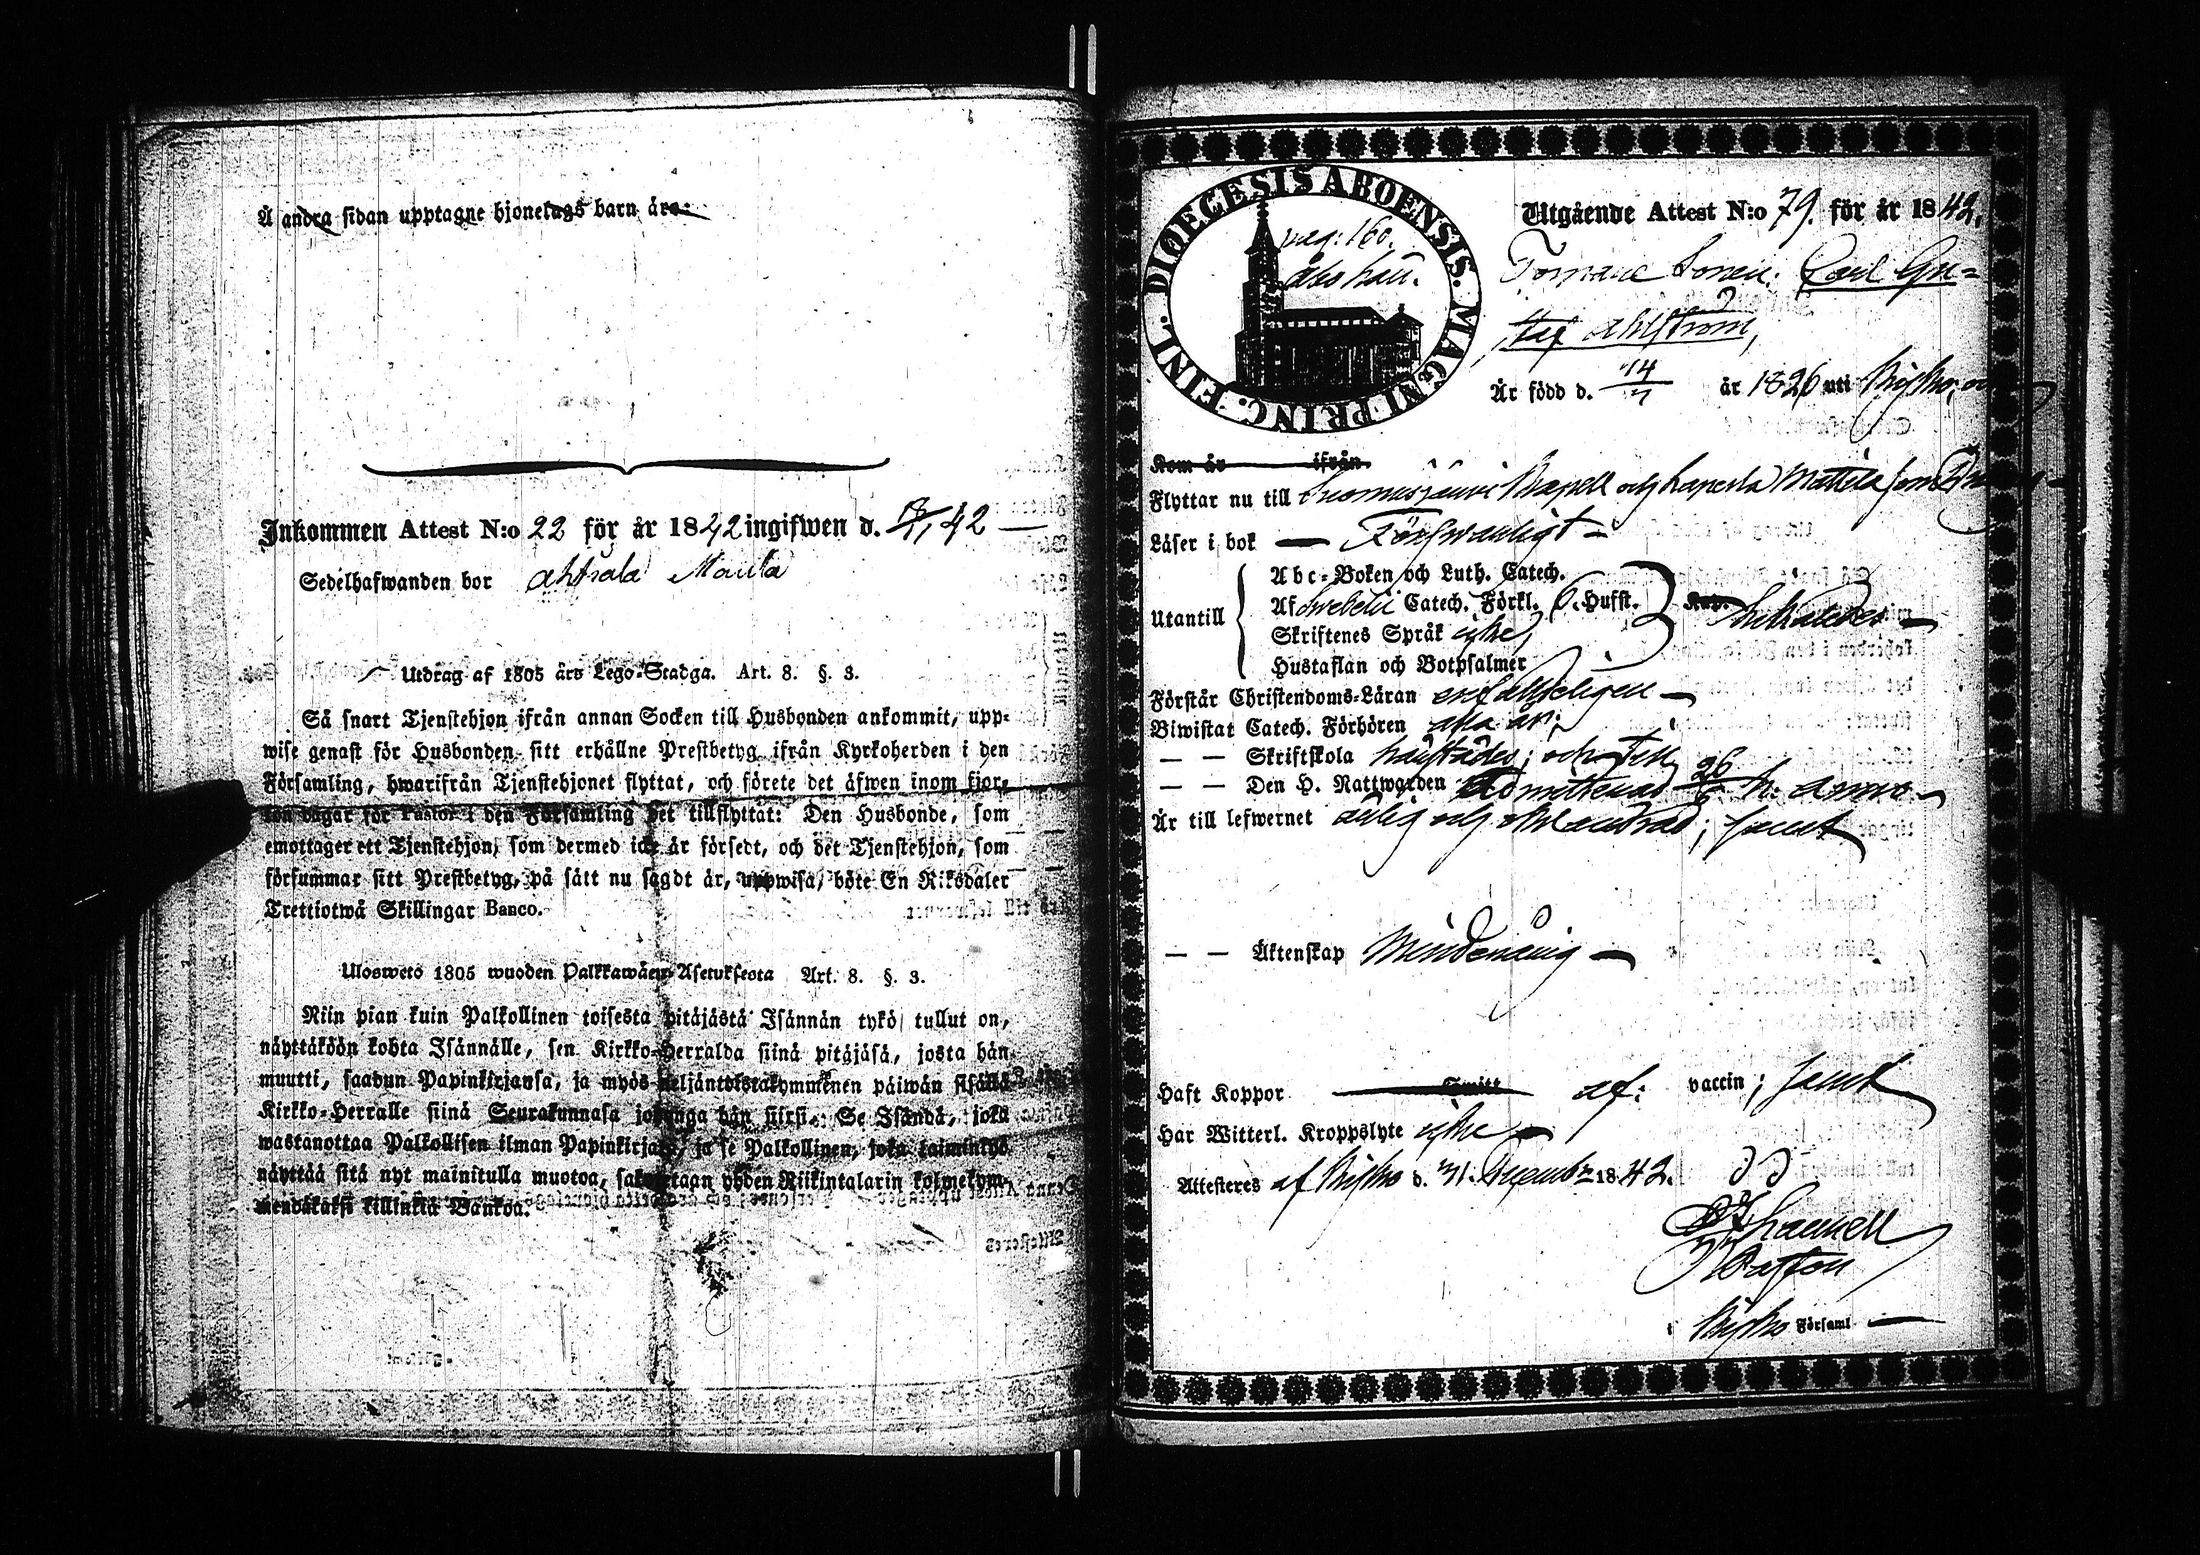 Å andra sidan upptagne hjonelags barn äro:
Inkommen Attest N:o 22 för år 1842 ingifwen d. 42
Sedelhafwanden bor
Utdrag af 1805 års Lego-Stadga. Art. 8. §. 3.
Så snart Tjenstehjon ifrån annan Socken till Husbonden ankommit, upp-
wise genast för Husbonden sitt erhållne Prestbetyg ifrån Kyrkoherden i den
Församling, hwarifrån Tjenstehjonet flyttat, och förete det äfwen inom fjor-
ton dagar för Pastor i den Församling det tillflyttat: Den Husbonde, som
emottager ett Tjenstehjon, som dermed icke är försedt, och det Tjenstehjon, som
försummar sitt Prestbetyg, på sätt nu sagdt är, uppwisa, böte En Riksdaler
Trettiotwå Skillingar Banco.
Ulosweto 1805 wuoden Palkkawäen-Asetuksesta Art. 8. §. 3.
Niin pian kuin Palkollinen toisesta pitäjästä Isännän tykö tullut on,
näyttäköön kohta Isännälle, sen Kirkko-Herralda siinä pitäjäsä, josta hän
muutti, saadun Papinkirjansa, ja myös neljäntoistakymmenen päiwän sisällä
Kirkko-Herralle siinä Seurakunnasa johonga hän siirsi. Se Isändä, joka
wastanottaa Palkollisen ilman Papinkirjata, ja se Palkollinen, joka laiminlyö
näyttää sitä nyt mainitulla muotoa, sakotetaan yhden Riikintalarin kolmekym-
mendäkaksi killinkiä Bankoa.
DIOECESIS ABOENSIS. MAGNI PRINC. FINL.
pag: 160.
Utgående Attest N:o 79. för år 1842.
Sonen: Carl Gu-
staf Ahlström,
Är född d. 14/7 år 1826 uti Kisko,
Kom år ifrån
Flyttar nu till Suomusjärvi Kapell och Laperla Mattila som
Läser i bok — Försvarligt —
Utantill
Abc-Boken och Luth. Catech.
Af Svebelii Catech. Förkl. 6. Hufst.
Skriftenes Språk icke,
Hustaflan och Botpsalmer
Kap.
Förstår Christendoms-Läran enfaldeligen —
Biwistat Catech. Förhören alla år;
— — Skriftskola
— — Den H. Nattwarden Admitterad 26/6 h. anno —
Är till lefwernet ärlig och oklandrad; samt
— — Äktenskap Minderårig —
Haft Koppor af: vaccin; samt
Har Witterl. Kroppslyte icke —
Attesteres af Kisko d. 31. Decembr 1842.
Pastor
i Kisko Församl —